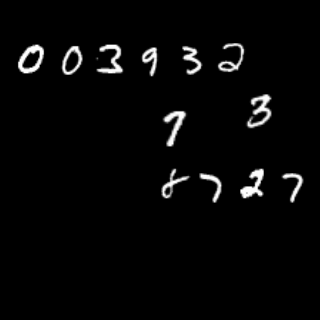 0 0 3 9 3 2
7 3
8 7 2 7